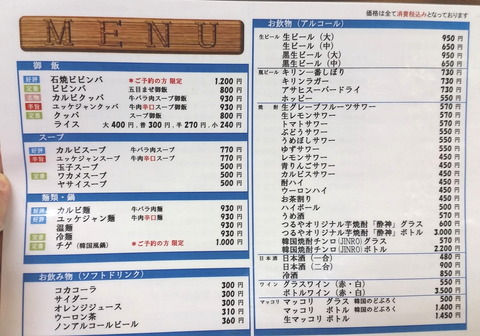 MENU
価格は全て消費税込みとなっております
御飯
好評 石焼ビビンバ ＊ご予約の方限定 1,200円
定番 ビビンバ 五目まぜ御飯 800円
カルビクッパ 牛バラ肉スープ御飯 930円
辛旨 ユッケジャンクッパ 牛肉辛口スープ御飯 930円
定番 クッパ スープ御飯 800円
ライス 大400円, 普300円, 半270円, 小240円
スープ
好評 カルビスープ 牛バラ肉スープ 770円
辛旨 ユッケジャンスープ 牛肉辛口スープ 770円
玉子スープ 500円
定番 ワカメスープ 500円
ヤサイスープ 500円
麺類・鍋
好評 カルビ麺 牛バラ肉麺 930円
ユッケジャン麺 牛肉辛口麺 930円
温麺 930円
定番 冷麺 930円
チゲ (韓国風鍋) ＊ご予約の方限定 1,000円
お飲み物 (ソフトドリンク)
コカコーラ 300円
サイダー 300円
オレンジジュース 300円
ウーロン茶 310円
ノンアルコールビール 360円
お飲物 (アルコール)
生ビール 生ビール (大) 950円
生ビール (中) 650円
黒生ビール (大) 950円
黒生ビール (中) 650円
瓶ビール キリン一番しぼり 730円
キリンラガー 730円
アサヒスーパードライ 730円
ホッピー 550円
焼酎 生グレープフルーツサワー 570円
生レモンサワー 570円
トマトサワー 570円
ぶどうサワー 550円
うめぼしサワー 550円
ゆずサワー 550円
レモンサワー 450円
青りんごサワー 450円
カルピスサワー 450円
酎ハイ 450円
ウーロンハイ 450円
お茶割り 450円
ハイボール 500円
うめ酒 500円
つるやオリジナル芋焼酎「酔神」グラス 600円
つるやオリジナル芋焼酎「酔神」ボトル 3,000円
韓国焼酎チンロ(JINRO)グラス 570円
韓国焼酎チンロ(JINRO)ボトル 2,200円
日本酒 日本酒 (一合) 480円
日本酒 (二合) 900円
冷酒 850円
ワイン グラスワイン (赤・白) 550円
ボトルワイン (赤・白) 3,500円
マッコリ マッコリ グラス 韓国のどぶろく 500円
マッコリ ボトル 韓国のどぶろく 1,400円
生マッコリ ボトル 1,450円